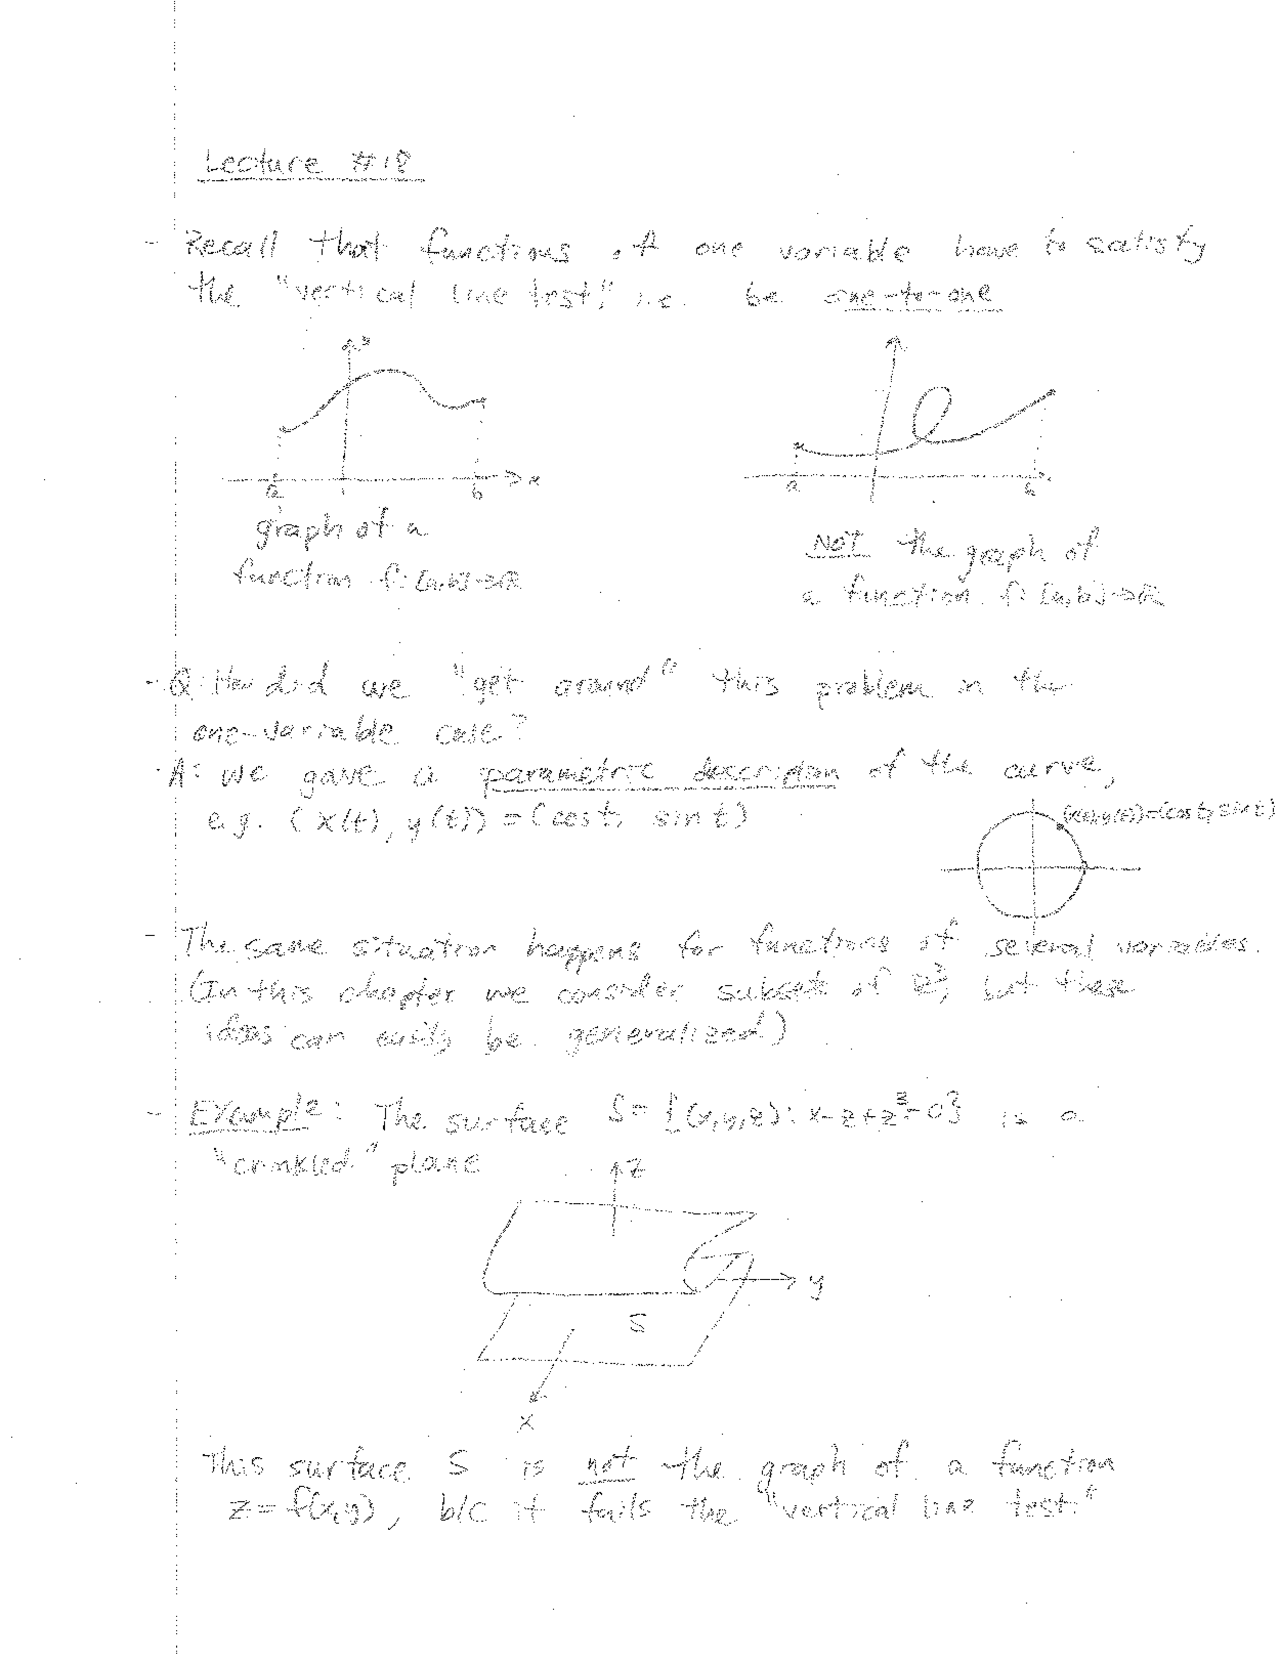 Lecture #18
- Recall that functions of one variable have to satisfy
the "vertical line test," i.e. be one-to-one
a b x
graph of a
function f: [a,b]→ℝ
a b
NOT the graph of
a function f: [a,b]→ℝ
- Q: How did we "get around" this problem in the
one-variable case?
A: we gave a parametric description of the curve,
e.g. (x(t), y(t)) = (cost, sint)
(x(t),y(t))=(cost, sint)
- The same situation happens for functions of several variables.
(In this chapter we consider subsets of ℝ³, but these
ideas can easily be generalized)
- Example: The surface S= {(x,y,z): x-z+z³=0} is a
"crinkled" plane
z
y
S
x
This surface S is not the graph of a function
z=f(x,y), b/c it fails the "vertical line test."